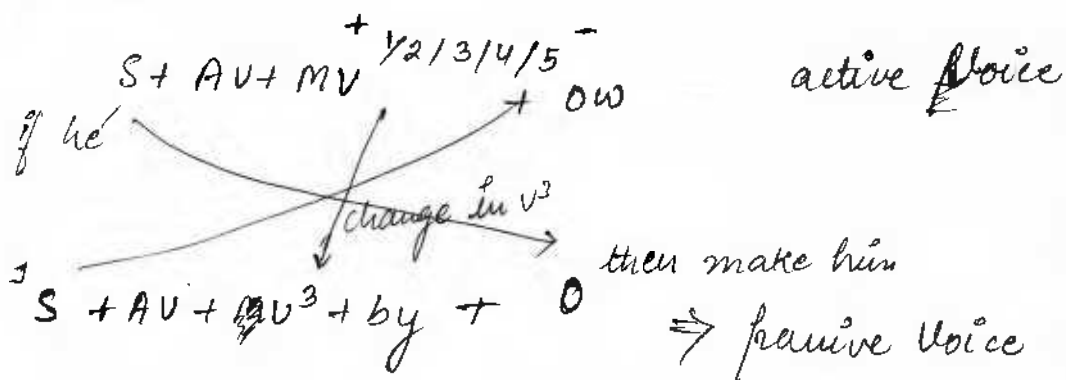 S + AV + MV + 1/2/3/4/5 - + OW active Voice
if he
change in v³
then make him
S + AV + MV³ + by + O
⇒ passive Voice